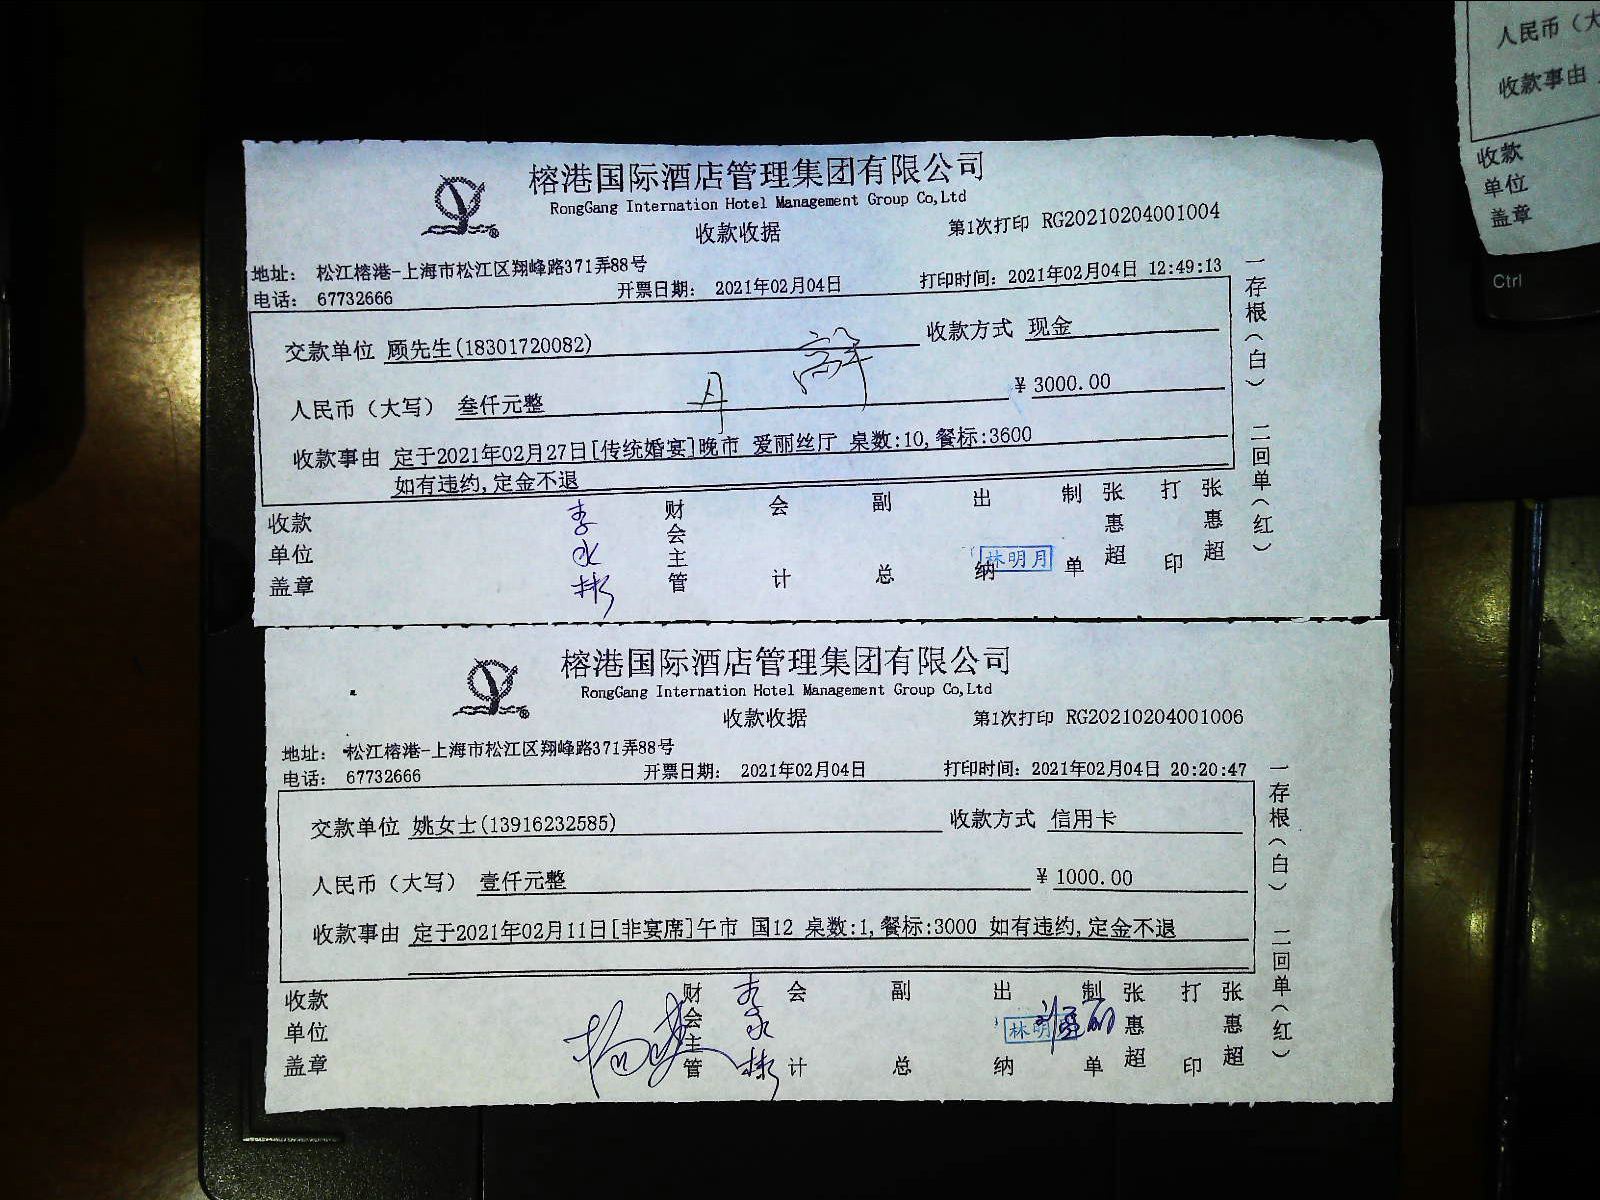 人民币（大
收款事由
收款
单位
盖章
Ctrl
榕港国际酒店管理集团有限公司
RongGang Internation Hotel Management Group Co,Ltd
收款收据
第1次打印 RG20210204001004
地址： 松江榕港-上海市松江区翔峰路371弄88号
电话： 67732666
开票日期： 2021年02月04日
打印时间：2021年02月04日 12:49:13
交款单位 顾先生(18301720082)
收款方式 现金
人民币（大写） 叁仟元整
¥ 3000.00
收款事由 定于2021年02月27日[传统婚宴]晚市 爱丽丝厅 桌数:10,餐标:3600
如有违约,定金不退
收款单位盖章
李永彬
财会主管
会计
副总
出纳
林明月
制单
张惠超
打印
张惠超
一存根（白） 二回单（红）
榕港国际酒店管理集团有限公司
RongGang Internation Hotel Management Group Co,Ltd
收款收据
第1次打印 RG20210204001006
地址： 松江榕港-上海市松江区翔峰路371弄88号
电话： 67732666
开票日期： 2021年02月04日
打印时间：2021年02月04日 20:20:47
交款单位 姚女士(13916232585)
收款方式 信用卡
人民币（大写） 壹仟元整
¥ 1000.00
收款事由 定于2021年02月11日[非宴席]午市 国12 桌数:1,餐标:3000 如有违约,定金不退
收款单位盖章
财会主管
李永彬
会计
副总
出纳
林明
制单
张惠超
打印
张惠超
一存根（白） 二回单（红）